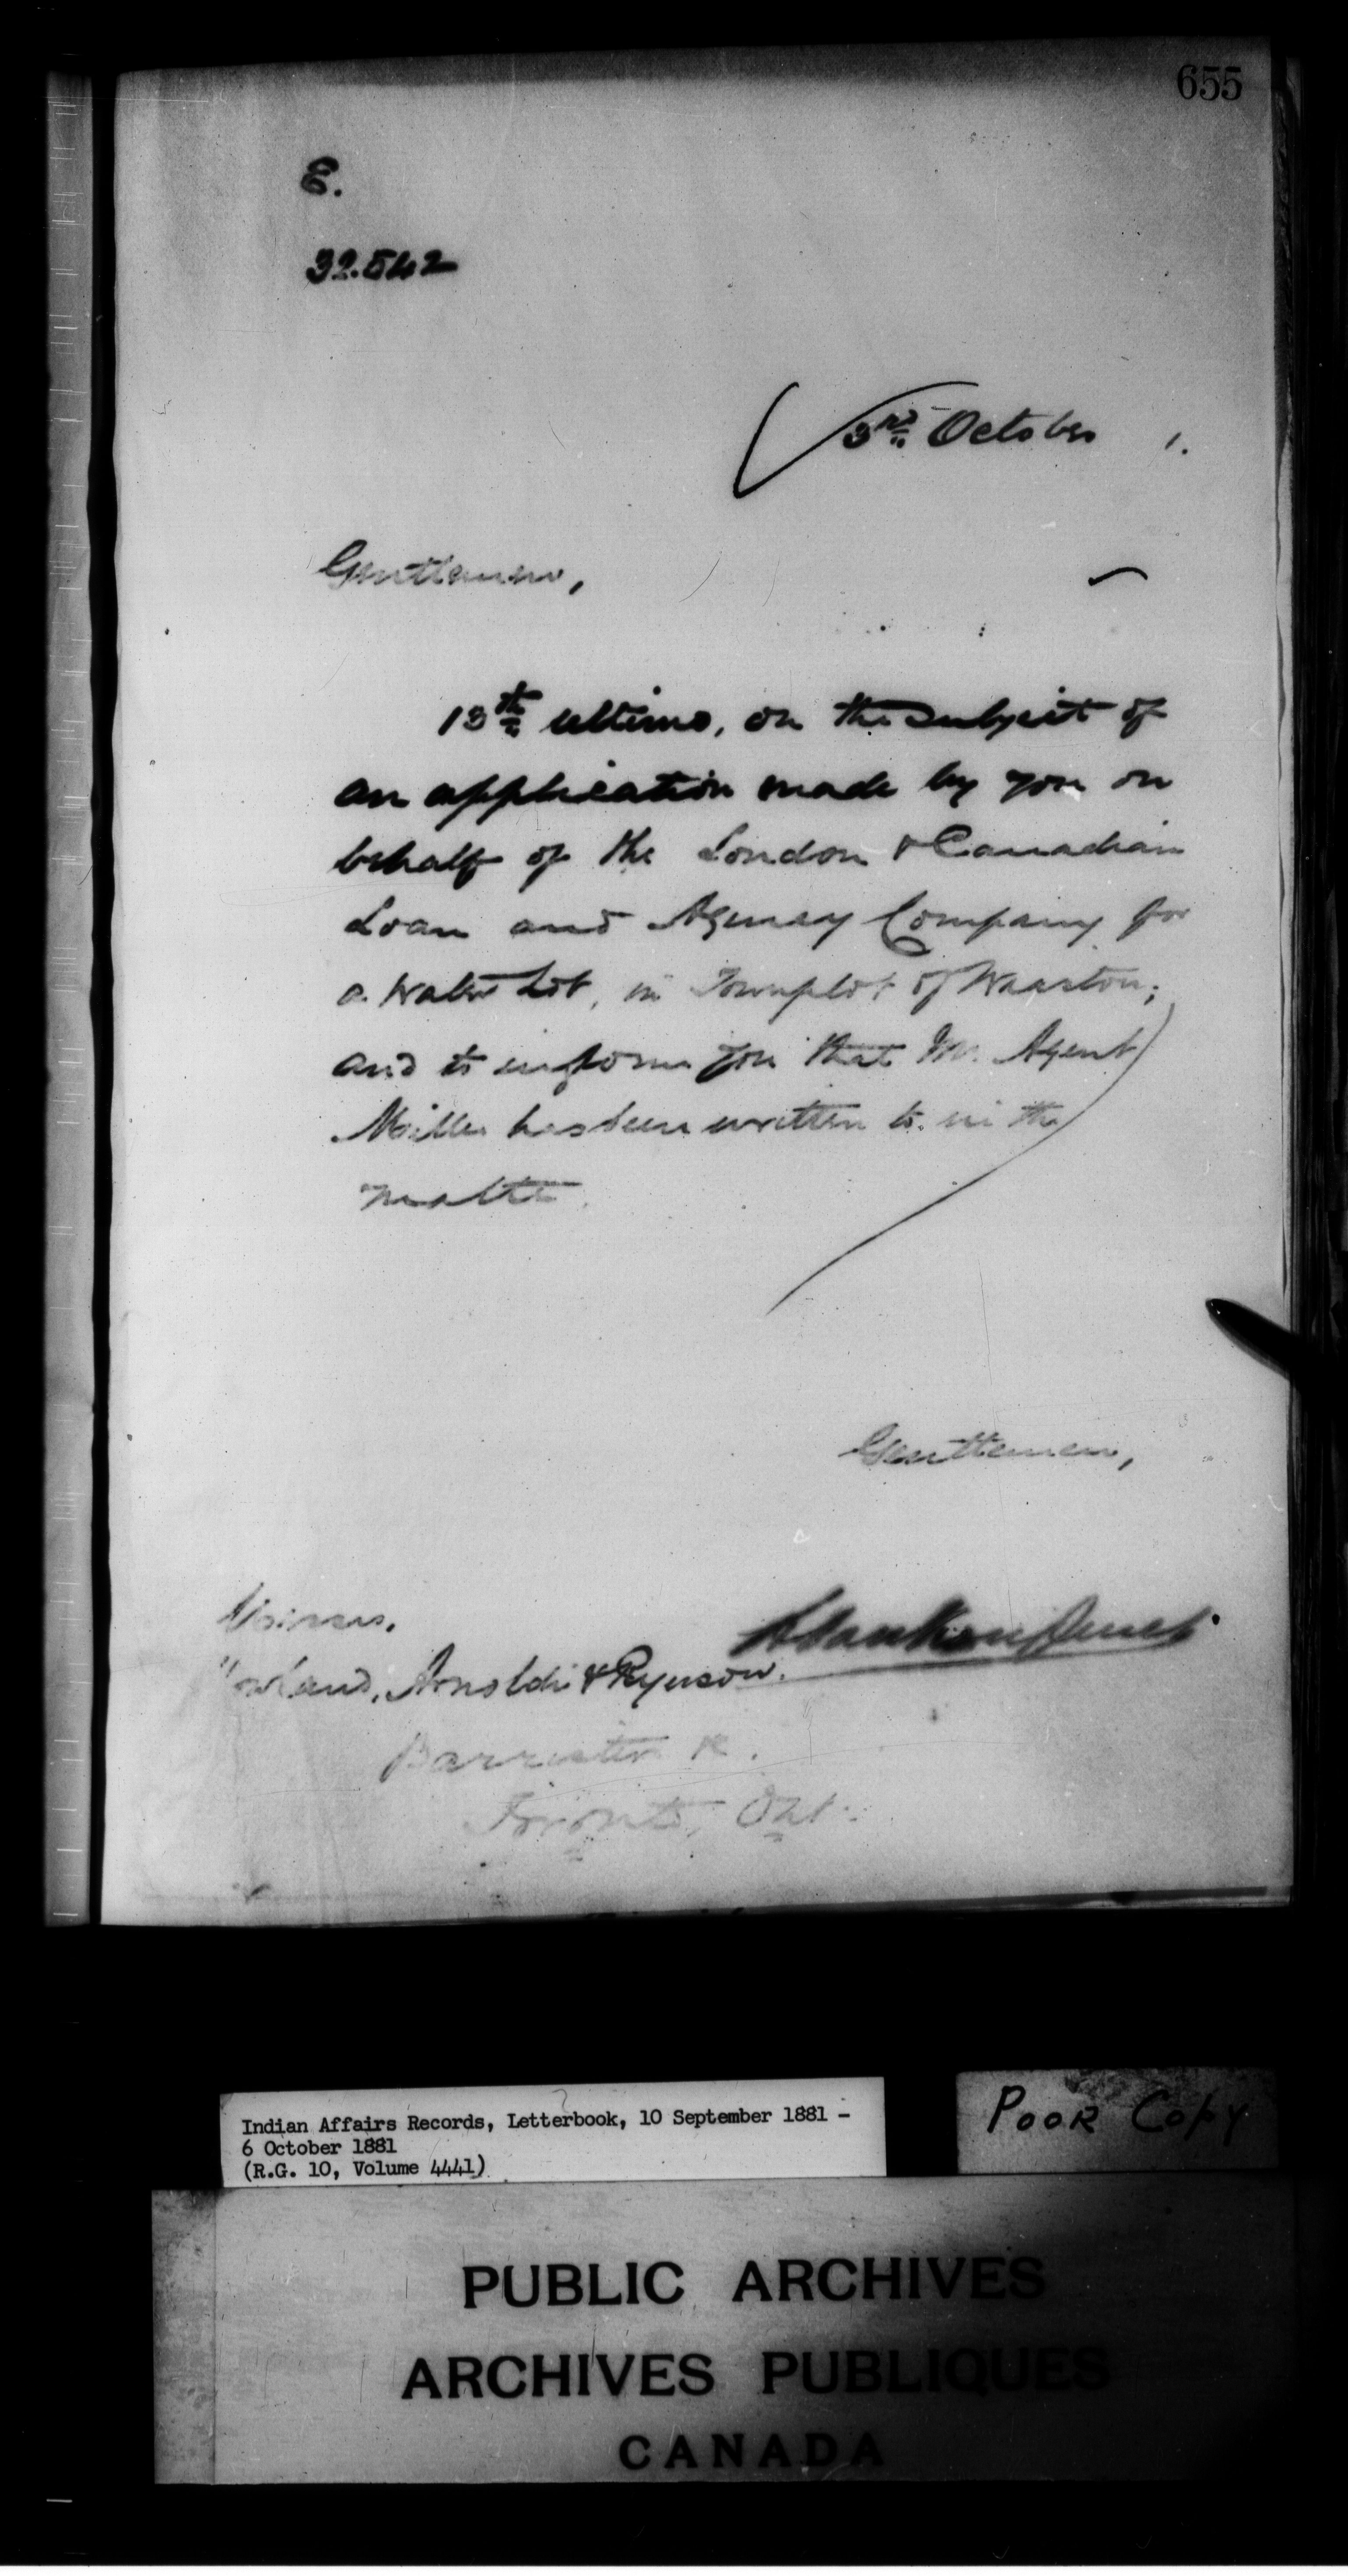 655
E.
32.542
3rd October 1.
Gentlemen,
13th ultimo, on the subject of
an application made by you on
behalf of the London & Canadian
Loan and Agency Company for
a Water Lot, in Townplot of Wiarton;
and to inform you that Mr. Agent
Miller has been written to in the
matter.
Gentlemen,
Messrs.
Howland, Arnoldi & Ryerson.
Barristers &c.
Toronto, Ont:
Indian Affairs Records, Letterbook, 10 September 1881 -
6 October 1881
(R.G. 10, Volume 4441)
POOR COPY
PUBLIC ARCHIVES
ARCHIVES PUBLIQUES
CANADA